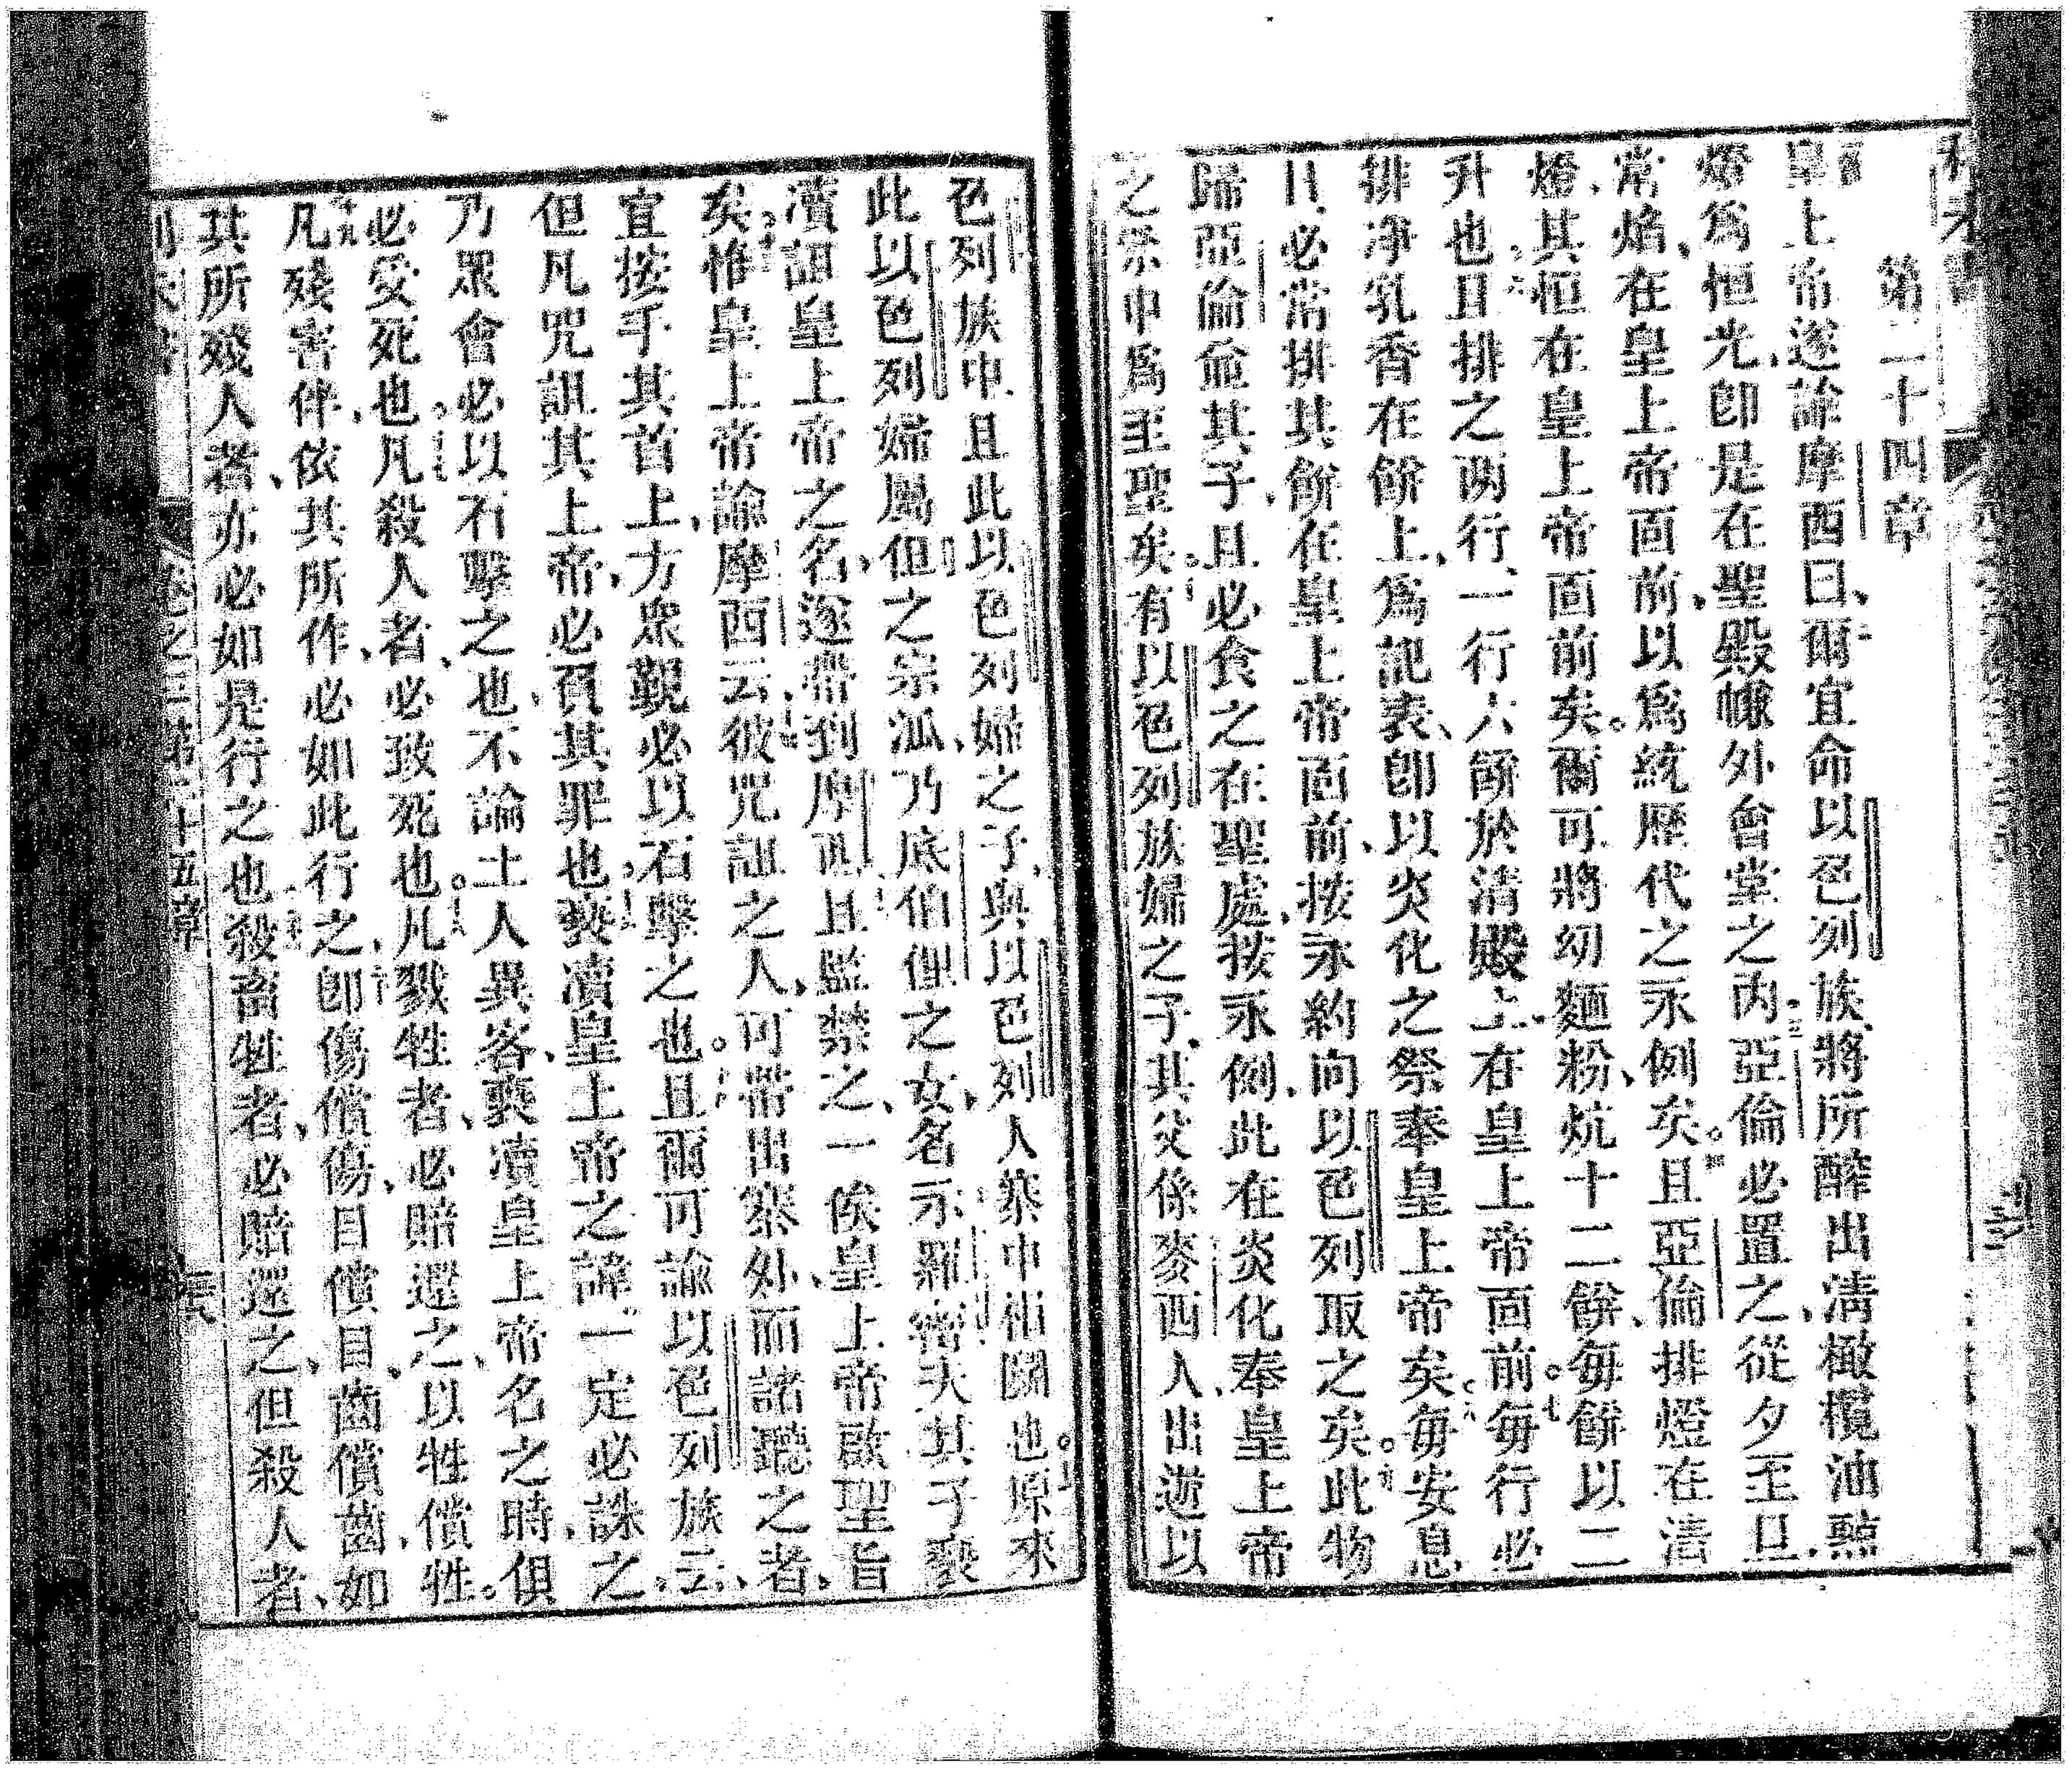 第二十四章
皇上帝遂諭摩西曰、爾宜命以色列族將所醡出清橄欖油點
燈爲恒光、卽是在聖殿幪外會堂之內、亞倫必置之、從夕至旦、
常焰、在皇上帝面前、以爲統歷代之永例矣。且亞倫排燈在清
燈、其恒在皇上帝面前矣。爾可將幼麵粉、炕十二餅、每餅以二
升也。且排之兩行、一行六餅於清殿上、在皇上帝面前。每行必
排凈乳香在餅上、爲記表、卽以炎化之祭奉皇上帝矣。每安息
日、必常排其餅在皇上帝面前、按永約向以色列取之矣。此物
歸亞倫並其子、且必食之在聖處、按永例、此在炎化奉皇上帝
之祭中爲至聖矣。有以色列族婦之子、其父係麥西人、出遊以
色列族中、且此以色列婦之子、與以色列人寨中相鬪也。原來
此以色列婦屬但之宗派、乃底伯俚之女、名示羅密夫、其子褻
瀆詛皇上帝之名、遂帶到摩西、且監禁之、一俟皇上帝啟聖旨
矣。惟皇上帝諭摩西云、彼咒詛之人、可帶出寨外、而諸聽之者、
宜按手其首上、方衆觀必以石擊之也。且爾可諭以色列族云、
但凡咒詛其上帝、必負其罪也。褻瀆皇上帝之諱、一定必誅之。
乃眾會必以石擊之也、不論土人異客、褻瀆皇上帝名之時、俱
必受死也。凡殺人者、必致死也。凡戮牲者、必賠還之、以牲償牲。
凡殘害伴、依其所作、必如此行之、卽傷償傷、目償目、齒償齒、如
其所殘人者、亦必如是行之也。殺畜牲者、必賠還之、但殺人者、
卷之三第二十五章